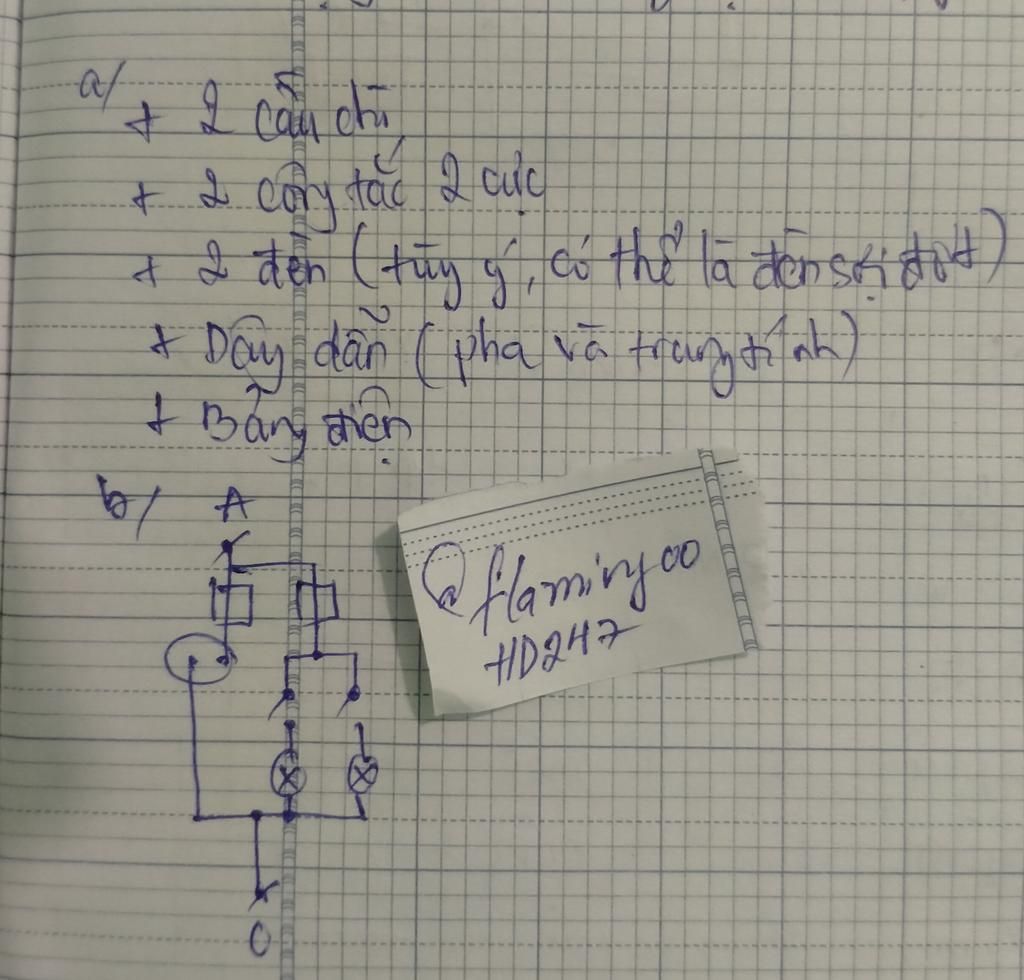 a/ + 2 cầu chì
+ 2 công tắc 2 cực
+ 2 đèn (tùy ý, có thể là đèn sợi đốt)
+ Dây dẫn (pha và trung tính)
+ Bảng điện
b/ A
@flamingoo
HD247
O